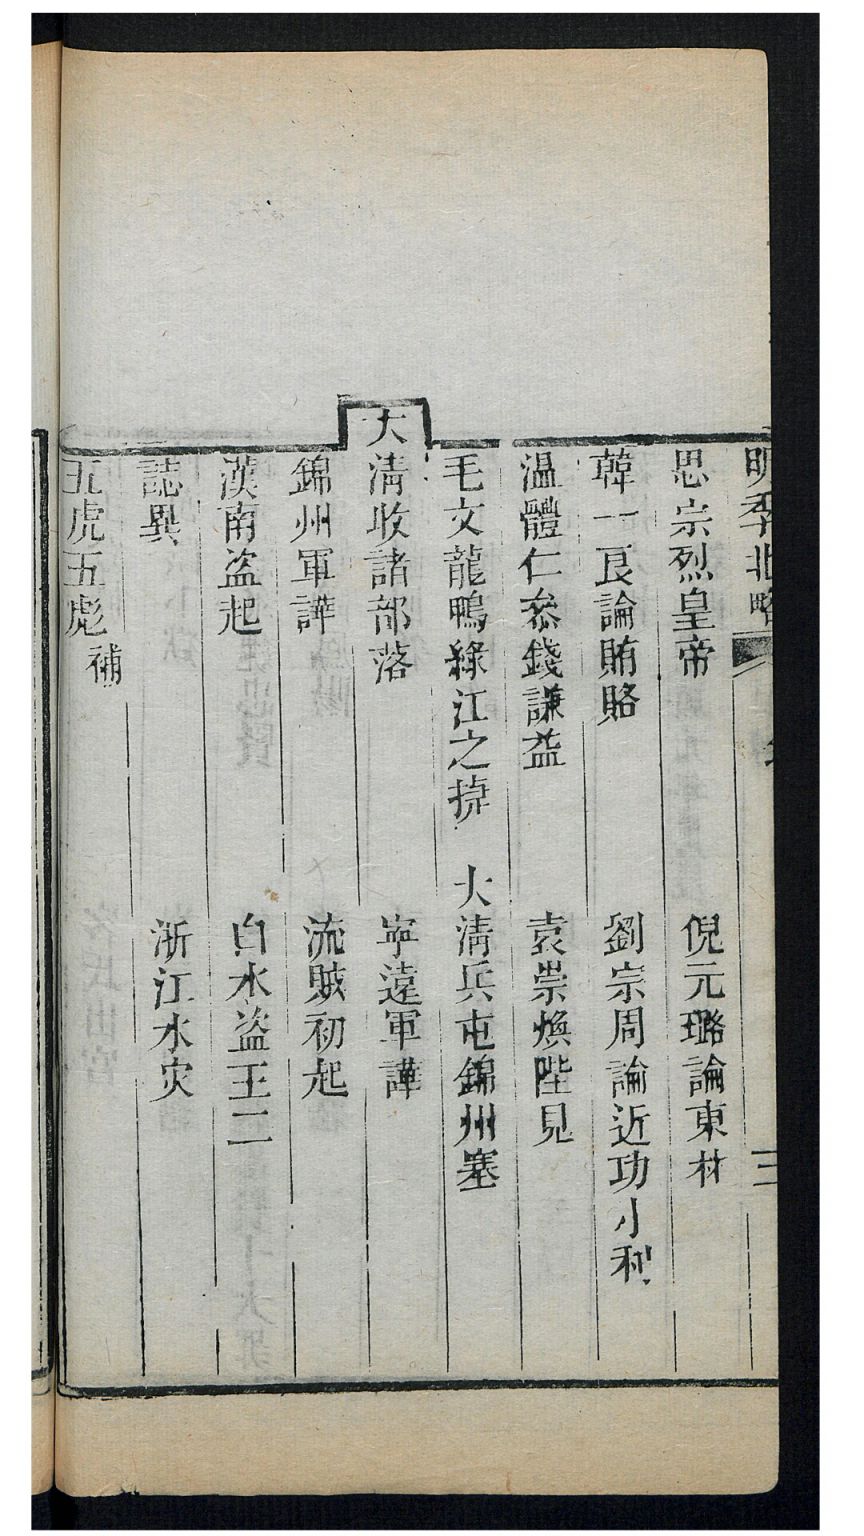 明季北略 三
思宗烈皇帝 倪元璐論東林
韓一良論賄賂 劉宗周論近功小利
温體仁叅錢謙益 袁崇煥陛見
毛文龍鴨綠江之捷 大清兵屯錦州塞
大清收諸部落 寧遠軍譁
錦州軍譁 流賊初起
漢南盗起 白水盗王二
誌異 浙江水灾
五虎五彪補